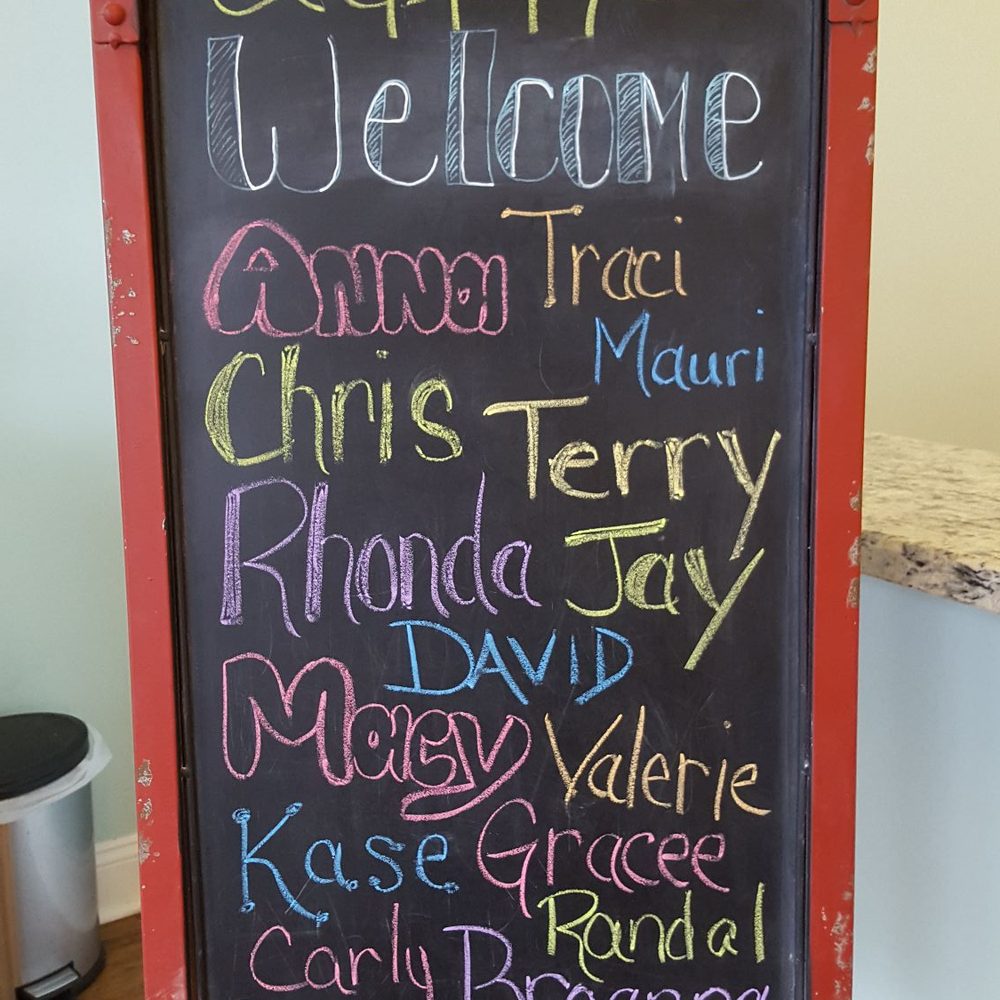 Welcome
Anna Traci
Mauri
Chris Terry
Rhonda Jay
DAVID
Macy Valerie
Kase Gracee
Randal
Carly